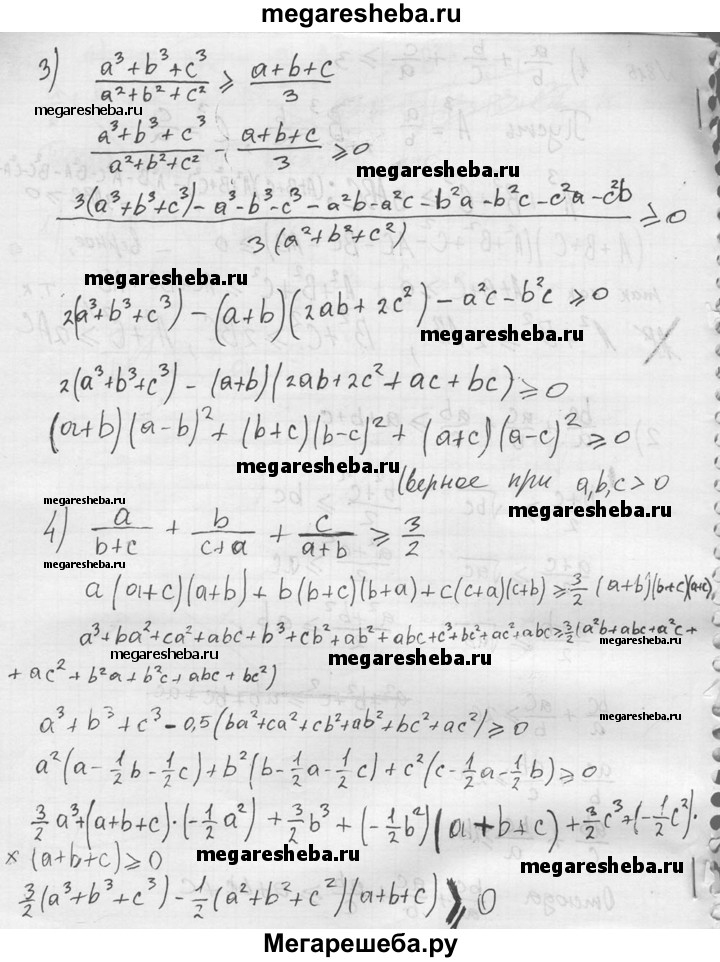 megaresheba.ru
3) (a³+b³+c³)/(a²+b²+c²) ⩾ (a+b+c)/3
megaresheba.ru
megaresheba.ru
(a³+b³+c³)/(a²+b²+c²) - (a+b+c)/3 ⩾0
megaresheba.ru
(3(a³+b³+c³)-a³-b³-c³-a²b-a²c-b²a-b²c-c²a-c²b)/(3(a²+b²+c²)) ⩾0
megaresheba.ru
2(a³+b³+c³)-(a+b)(2ab+2c²)-a²c-b²c⩾0
megaresheba.ru
2(a³+b³+c³)-(a+b)(2ab+2c²+ac+bc)⩾0
(a+b)(a-b)²+(b+c)(b-c)²+(a+c)(a-c)²⩾0
megaresheba.ru
(верное при a,b,c>0
megaresheba.ru
megaresheba.ru
4) a/(b+c) + b/(c+a) + c/(a+b) ⩾ 3/2
megaresheba.ru
a(a+c)(a+b)+b(b+c)(b+a)+c(c+a)(c+b)⩾3/2(a+b)(b+c)(a+c)
a³+ba²+ca²+abc+b³+cb²+ab²+abc+c³+bc²+ac²+abc⩾3/2(a²b+abc+a²c+
megaresheba.ru
megaresheba.ru
+ac²+b²a+b²c+abc+bc²)
a³+b³+c³-0,5(ba²+ca²+cb²+ab²+bc²+ac²)⩾0
megaresheba.ru
a²(a-1/2b-1/2c)+b²(b-1/2a-1/2c)+c²(c-1/2a-1/2b)⩾0
3/2a³+(a+b+c)·(-1/2a²)+3/2b³+(-1/2b²)(a+b+c)+3/2c³+(-1/2c²)·
×(a+b+c)⩾0
megaresheba.ru
megaresheba.ru
3/2(a³+b³+c³)-1/2(a²+b²+c²)(a+b+c)⩾0
Мегарешеба.ру